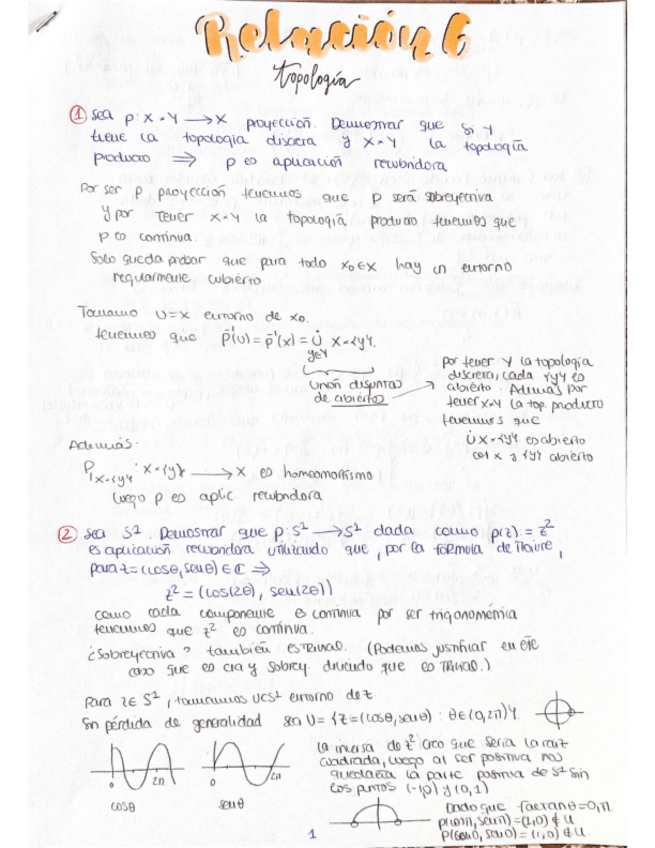 Relación 6
topología
① Sea p: X×Y → X proyección. Demostrar que si Y
tiene la topología discreta y X×Y la topología
producto ⟹ p es aplicación recubridora
Por ser p proyección tenemos que p será sobreyectiva
y por tener X×Y la topología producto tenemos que
p es continua.
Solo queda probar que para todo x₀∈X hay un entorno
regularmente cubierto
Tomamos U=X entorno de x₀.
tenemos que p⁻¹(U)=p⁻¹(X)= ∪̇ X×{y}.
y∈Y
Unión disjunta
de abiertos
por tener Y la topología
discreta, cada {y} es
abierto. Además por
tener X×Y la top. producto
tenemos que
∪̇ X×{y} es abierto
con X y {y} abierto
Además:
p|X×{y} : X×{y} → X es homeomorfismo
luego p es aplic recubridora
② Sea S¹. Demostrar que p: S¹ → S¹ dada como p(z) = z²
es aplicación recubridora utilizando que, por la fórmula de Moivre,
para z=(cosθ, senθ) ∈ ℂ ⟹
z² = (cos(2θ), sen(2θ))
como cada componente es continua por ser trigonométrica
tenemos que z² es continua.
¿Sobreyectiva? también es trivial. (Podemos justificar en este
caso que es cta y sobrey. diciendo que es trivial.)
Para z∈S¹, tomamos U⊂S¹ entorno de z.
Sin pérdida de generalidad sea U= {z=(cosθ, senθ) : θ∈(0,2π)}.
0 2π
cosθ
0 2π
senθ
la inversa de z² creo que sería la raíz
cuadrada, luego al ser positiva nos
quedaría la parte positiva de S¹ sin
los puntos (-1,0) y (0,1)
Dado que faltan θ=0,π.
p(cosπ, senπ)=(1,0) ∉ U
p(cos0, sen0)=(1,0) ∉ U.
1